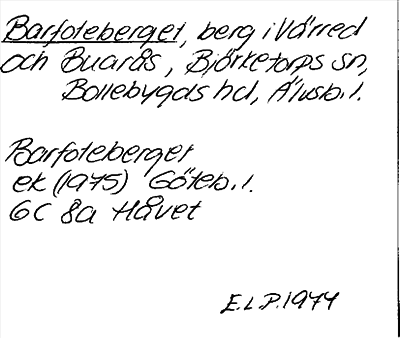 Barfoteberget, berg i Värred
och Buarås, Björketorps sn,
Bollebygds hd, Älvsb. l.
Barfoteberget
ek (1975) Göteb. l.
6C 8a Håvet
E.L.P. 1974